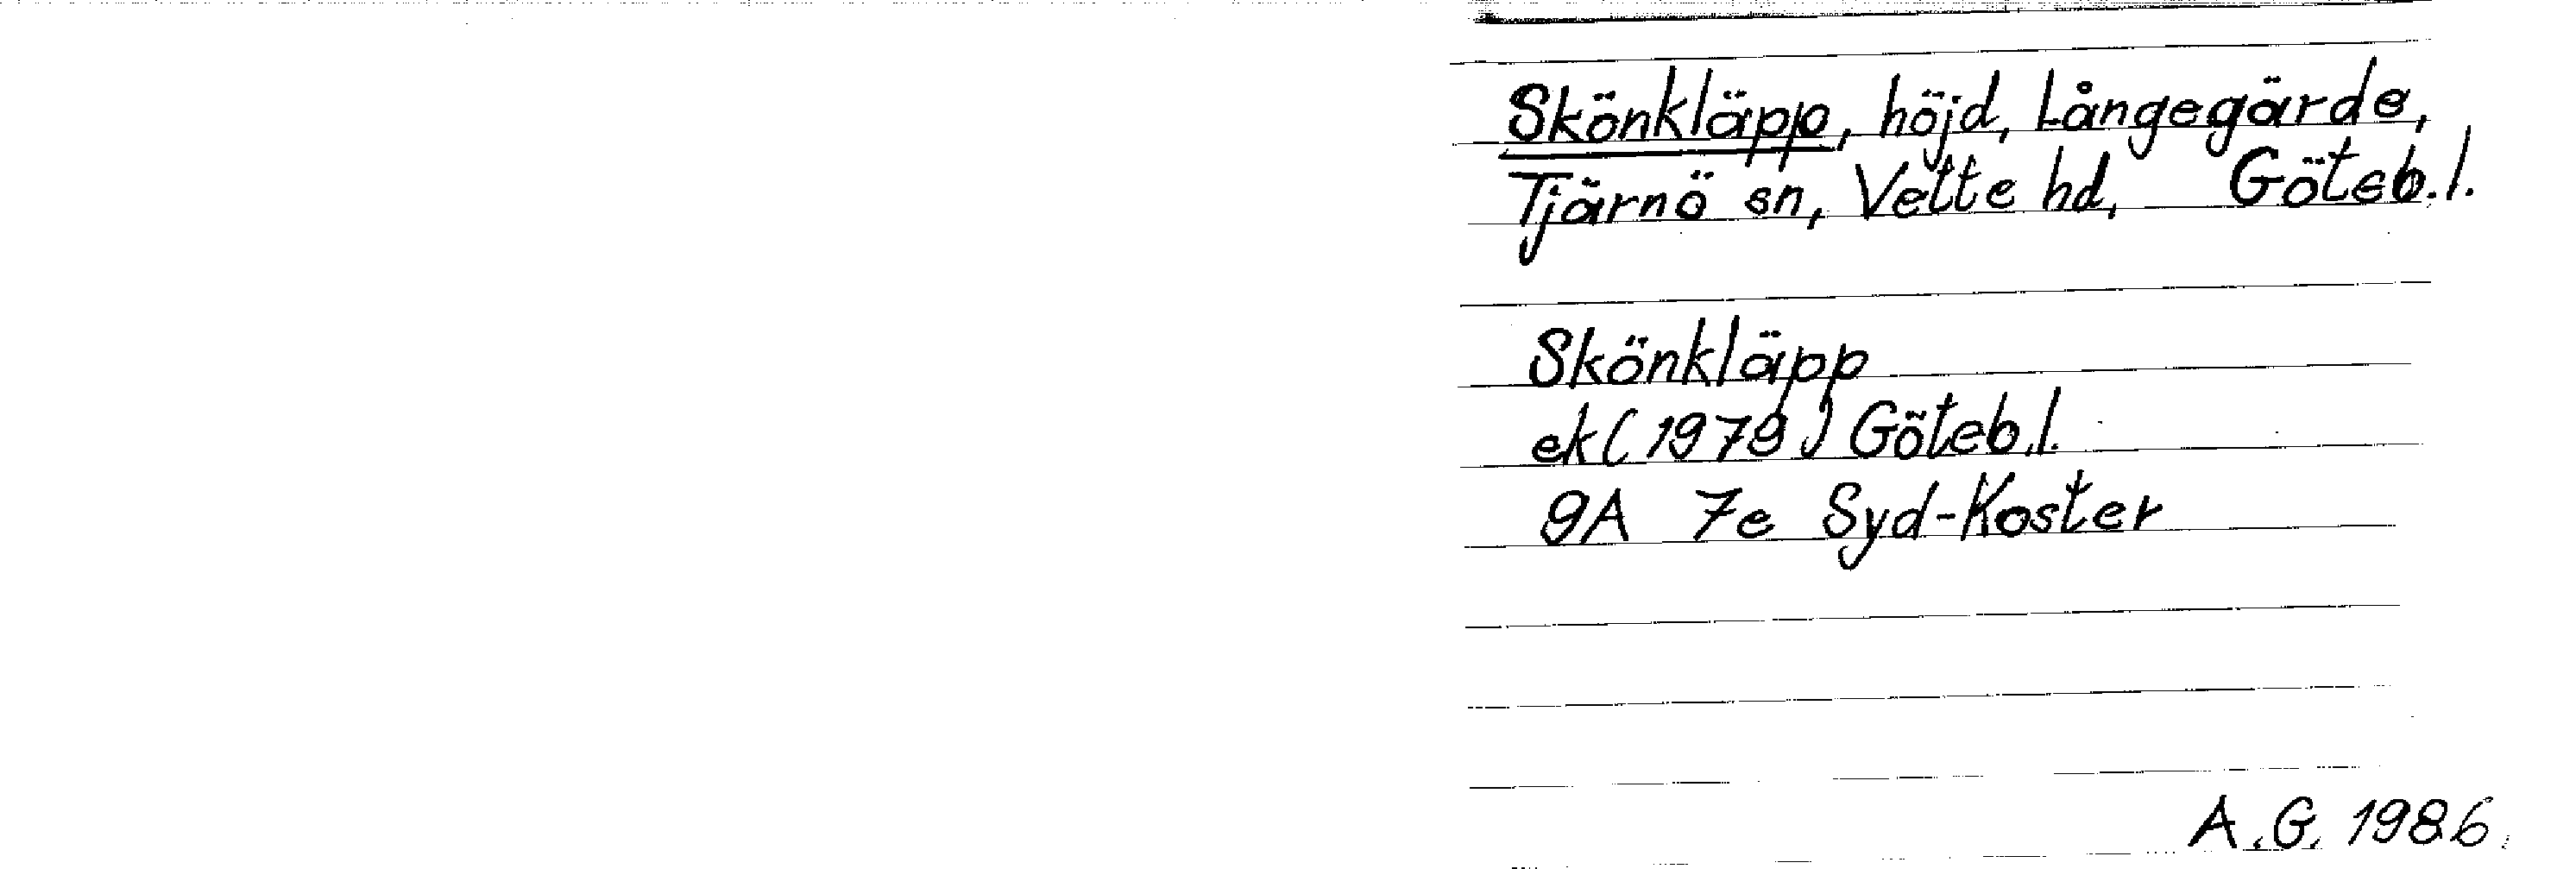 Skönkläpp, höjd, Långegärde,
Tjärnö sn, Vette hd, Göteb.l.
Skönkläpp
ek(1979) Göteb.l.
9A 7e Syd-Koster
A.G. 1986.